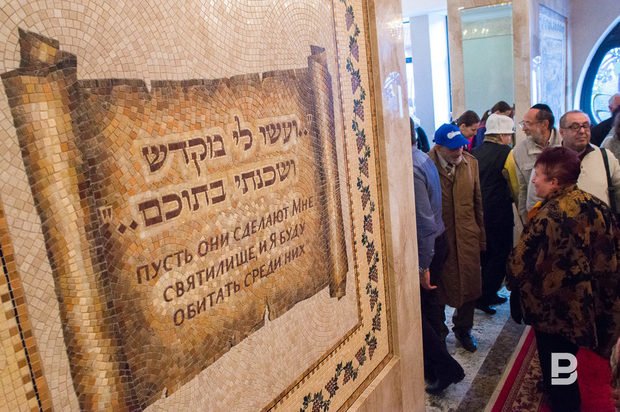 "..ועשו לי מקדש
ושכנתי בתוכם.."
ПУСТЬ ОНИ СДЕЛАЮТ МНЕ
СВЯТИЛИЩЕ, И Я БУДУ
ОБИТАТЬ СРЕДИ НИХ
B